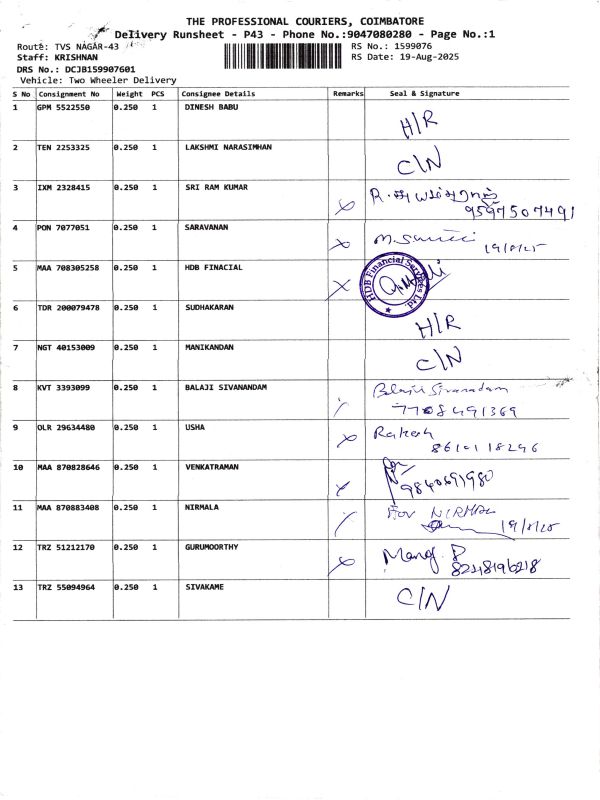 THE PROFESSIONAL COURIERS, COIMBATORE
Delivery Runsheet - P43 - Phone No.:9047080280 - Page No.:1
Route: TVS NAGAR-43 RS No.: 1599076
Staff: KRISHNAN RS Date: 19-Aug-2025
DRS No.: DCJB159907601
Vehicle: Two Wheeler Delivery
S No Consignment No Weight PCS Consignee Details Remarks Seal & Signature
1 GPM 5522550 0.250 1 DINESH BABU H/R
2 TEN 2253325 0.250 1 LAKSHMI NARASIMHAN C/N
3 IXM 2328415 0.250 1 SRI RAM KUMAR R.
9597507491
4 PON 7077051 0.250 1 SARAVANAN M. 19/8/25
5 MAA 708305258 0.250 1 HDB FINACIAL HDB Financial Services Ltd
6 TDR 200079478 0.250 1 SUDHAKARAN H/R
7 NGT 40153009 0.250 1 MANIKANDAN C/N
8 KVT 3393099 0.250 1 BALAJI SIVANANDAM Balaji Sivanandam
7708491369
9 OLR 29634480 0.250 1 USHA Rakesh
8610118296
10 MAA 870828646 0.250 1 VENKATRAMAN
9840691980
11 MAA 870883408 0.250 1 NIRMALA For NIRMAL
19/8/25
12 TRZ 51212170 0.250 1 GURUMOORTHY Manoj. P
8248196218
13 TRZ 55094964 0.250 1 SIVAKAME C/N